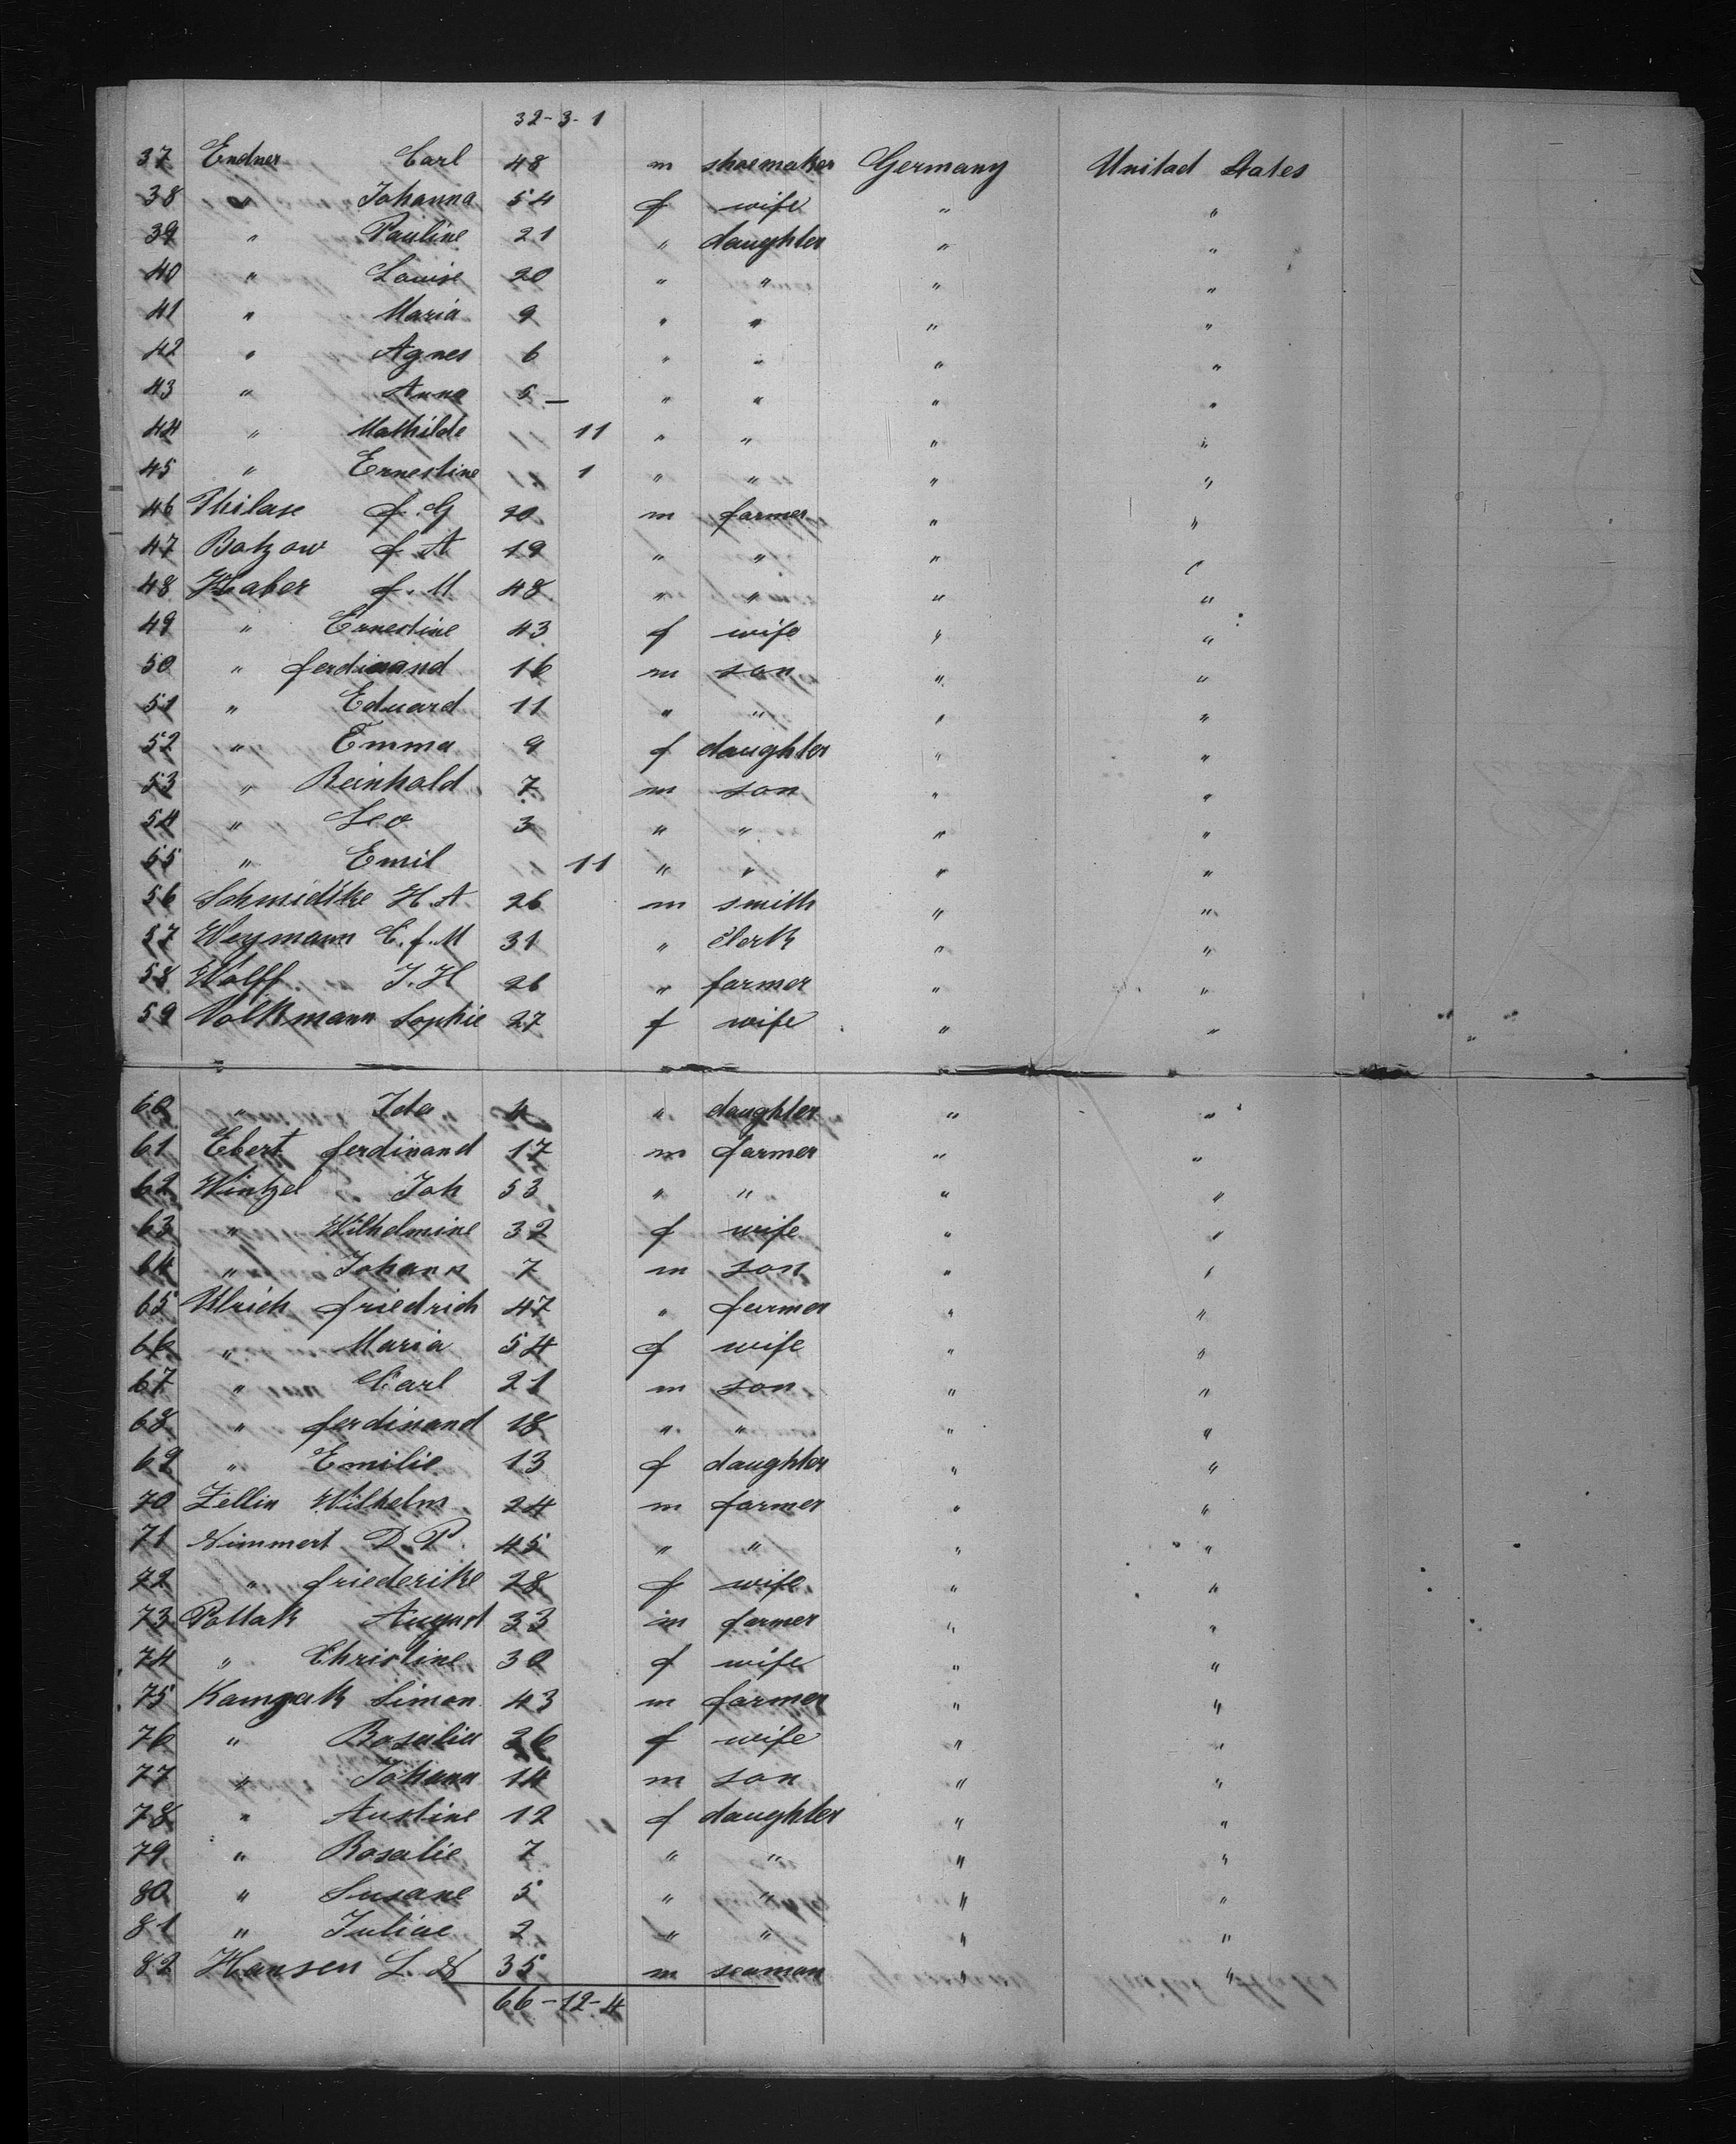 32-3-1
37 Endner Carl 48 m shoemaker Germany United States
38 " Johanna 54 f wife " "
39 " Pauline 21 " daughter " "
40 " Louise 20 " " " "
41 " Maria 9 " " " "
42 " Agnes 6 " " " "
43 " Anna 5 — " " " "
44 " Mathilde 11 " " " "
45 " Ernestine 1 " " " "
46 f. G 20 m farmer " "
47 Botzow f A 19 " " " "
48 Haber f. M 48 " " " "
49 " Ernestine 43 f wife " "
50 " ferdinand 16 m son " "
51 " Eduard 11 " " " "
52 " Emma 9 f daughter " "
53 " Reinhold 7 m son " "
54 " Leo 3 " " " "
55 " Emil 11 " " " "
56 Schmidtke H. A. 26 m smith " "
57 Weymann C. f. M 31 " clerk " "
58 Wolff J. H 26 " farmer " "
59 Volkmann Sophie 27 f wife " "
60 " Ida " daughter " "
61 Ebert ferdinand 17 m farmer " "
62 Wintzel Joh 53 " " " "
63 " Wilhelmine 32 f wife " "
64 " Johann 7 m son " "
65 Ulrich friedrich 47 " farmer " "
66 " Maria 54 f wife " "
67 " Carl 21 m son " "
68 " ferdinand 18 " " " "
69 " Emilie 13 f daughter " "
70 Zellin Wilhelm 24 m farmer " "
71 Nimmert D. P. 45 " " " "
72 " friederike 28 f wife " "
73 Pollak August 33 m farmer " "
74 " Christine 30 f wife " "
75 Simon 43 m farmer " "
76 " Rosalia 26 f wife " "
77 " Johann 14 m son " "
78 " Austine 12 f daughter " "
79 " Rosalie 7 " " " "
80 " Susane 5 " " " "
81 " Juliae 2 " " " "
82 Hansen L. 35 m seaman " "
66-12-4